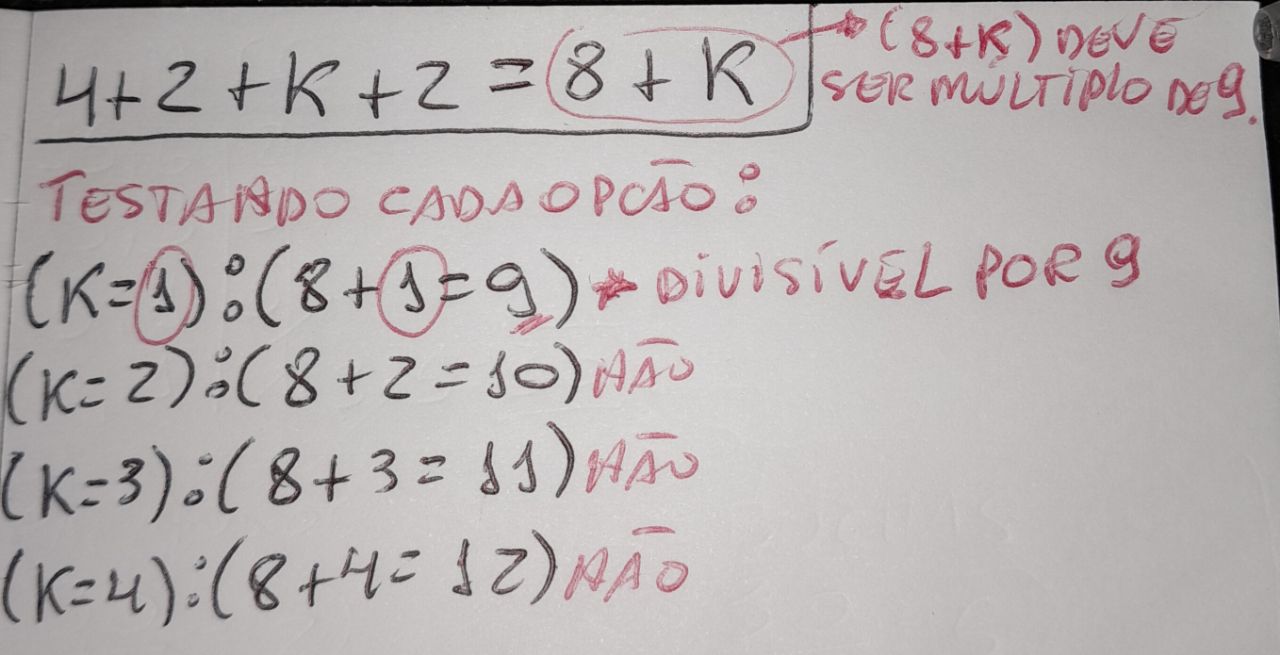 4+2+K+2=8+K → (8+K) DEVE
SER MÚLTIPLO DE 9.
TESTANDO CADA OPCÃO:
(K=1):(8+1=9)→ DIVISÍVEL POR 9
(K=2):(8+2=10) NÃO
(K=3):(8+3=11) NÃO
(K=4):(8+4=12) NÃO